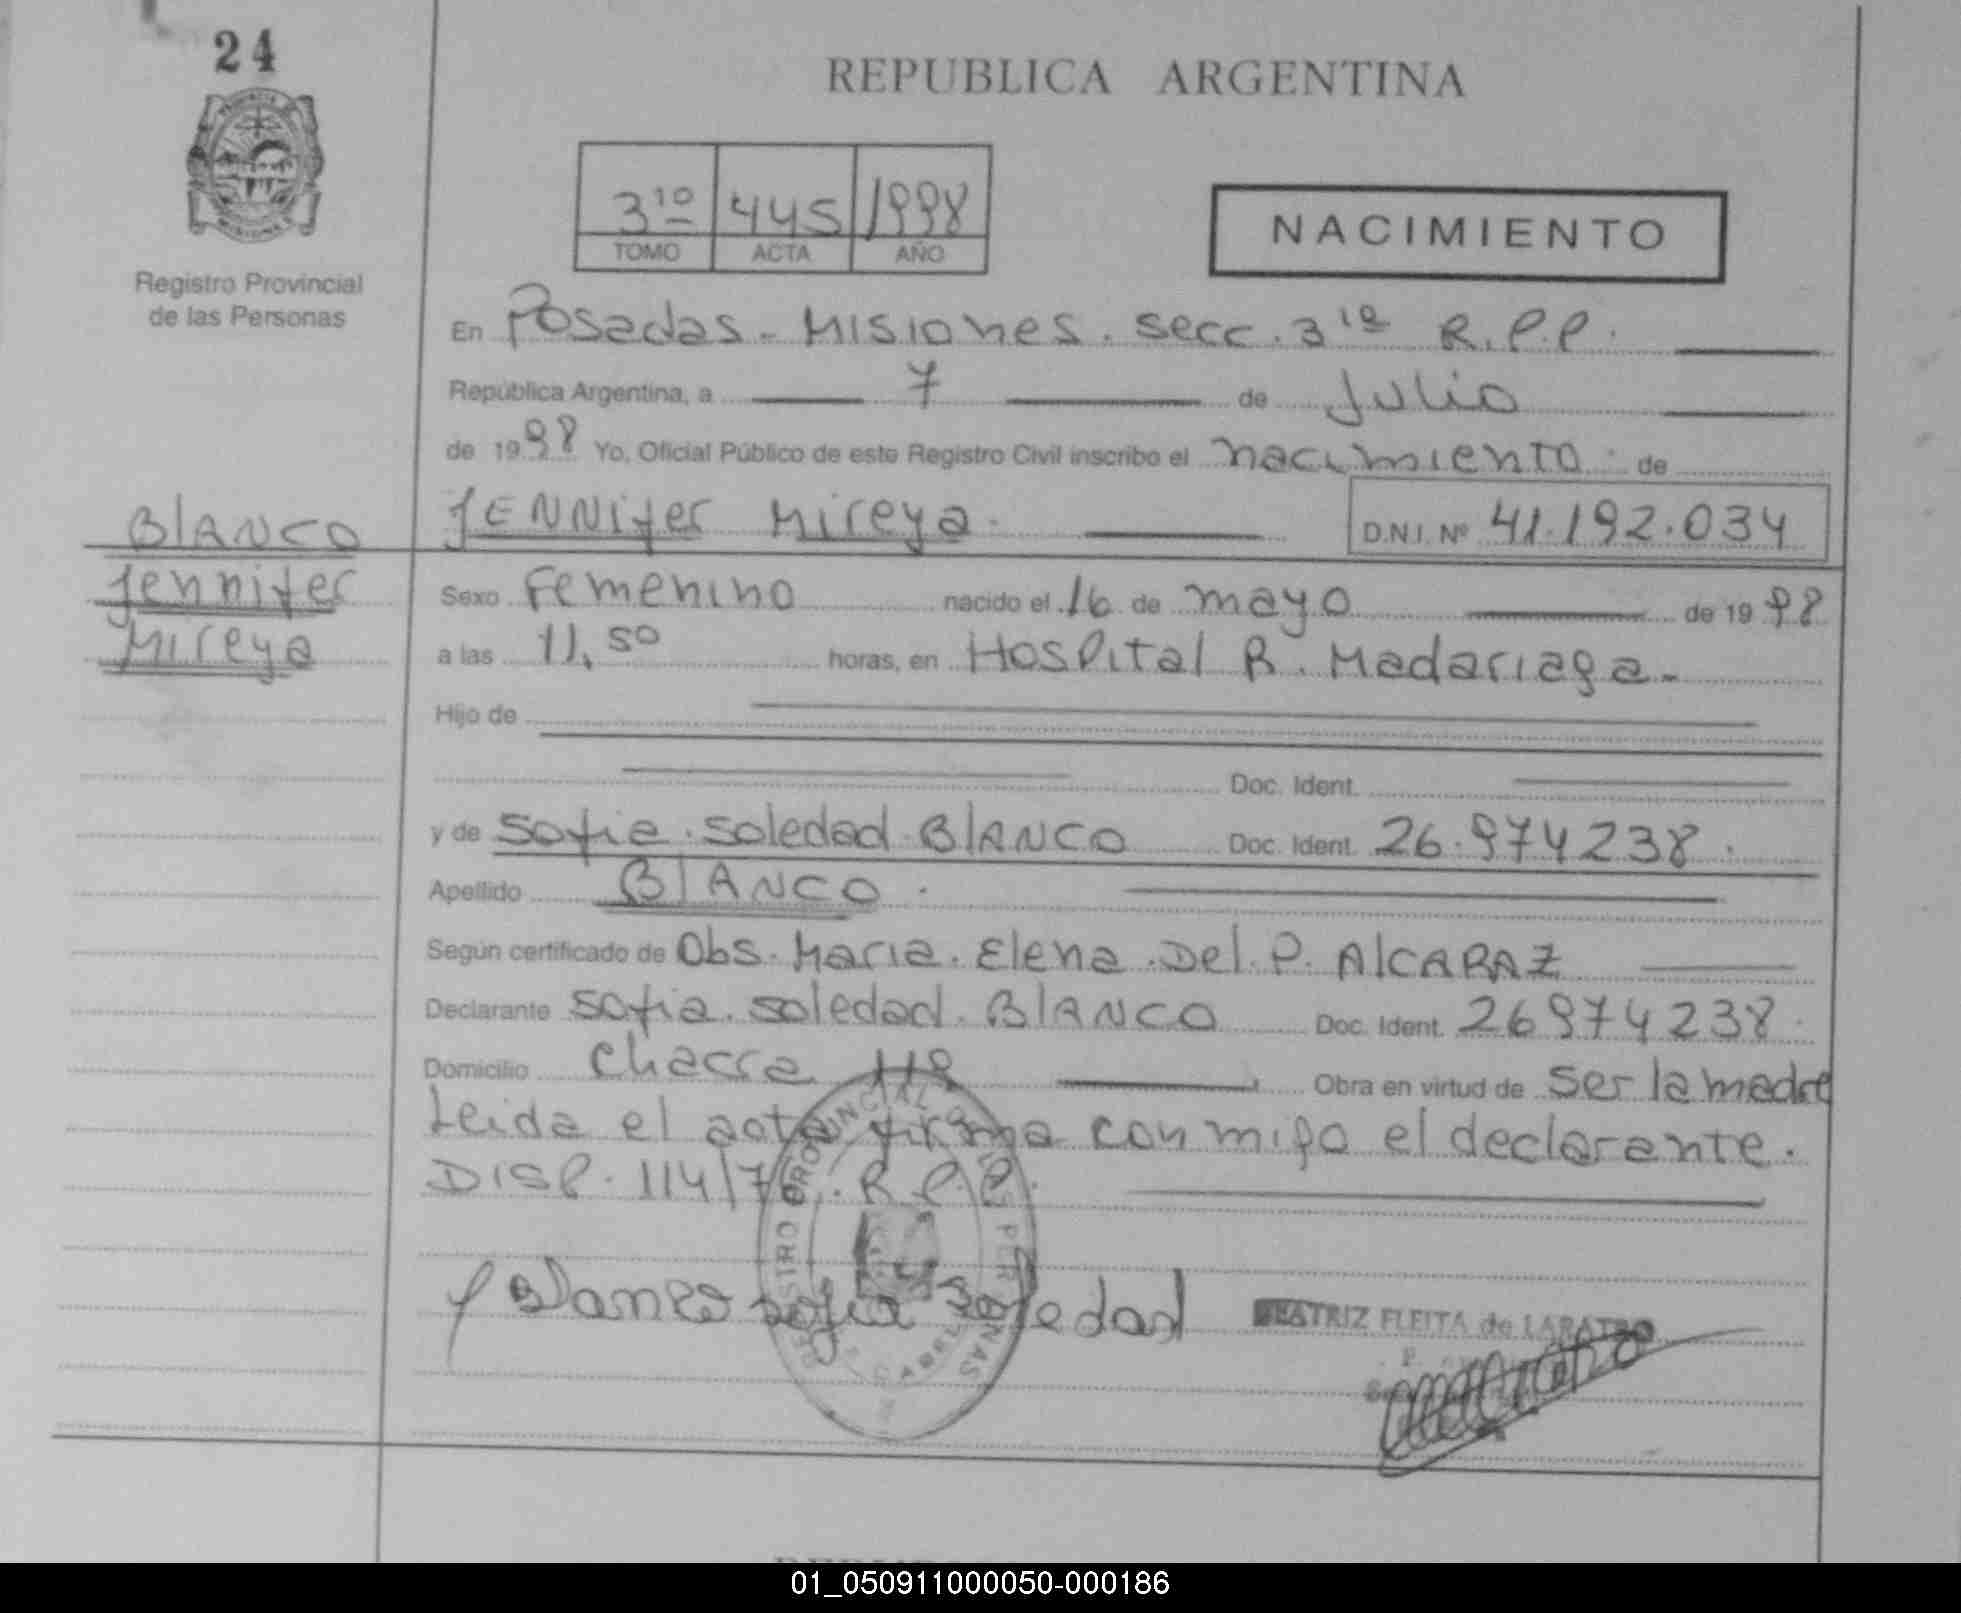 24
REPUBLICA ARGENTINA
3ro 445 1998
TOMO ACTA AÑO
NACIMIENTO
Registro Provincial
de las Personas
En Posadas - Misiones. secc. 3ra R.P.P.
República Argentina, a 7 de Julio
de 1998 Yo, Oficial Público de este Registro Civil inscribo el nacimiento de
Blanco
Jennifer
Mireya
JENNifer Mireya. D.N.I. Nº 41.192.034
Sexo Femenino nacido el 16 de mayo de 1998
a las 11,50 horas, en Hospital R. Madariaga.
Hijo de
Doc. Ident.
y de Sofia. Soledad. BlANCO Doc. Ident. 26.974238.
Apellido BlANCO.
Según certificado de Obs. Maria. Elena. Del. P. AlCARAZ
Declarante Sofia. Soledad. BlANCO Doc. Ident. 26974238.
Domicilio chacra 118 Obra en virtud de ser la madre
Leida el acta firma conmigo el declarante.
DISP. 114/76. R.P.P.
Blanco Sofia Soledad
BEATRIZ FLEITA de LARATRO
01_050911000050-000186